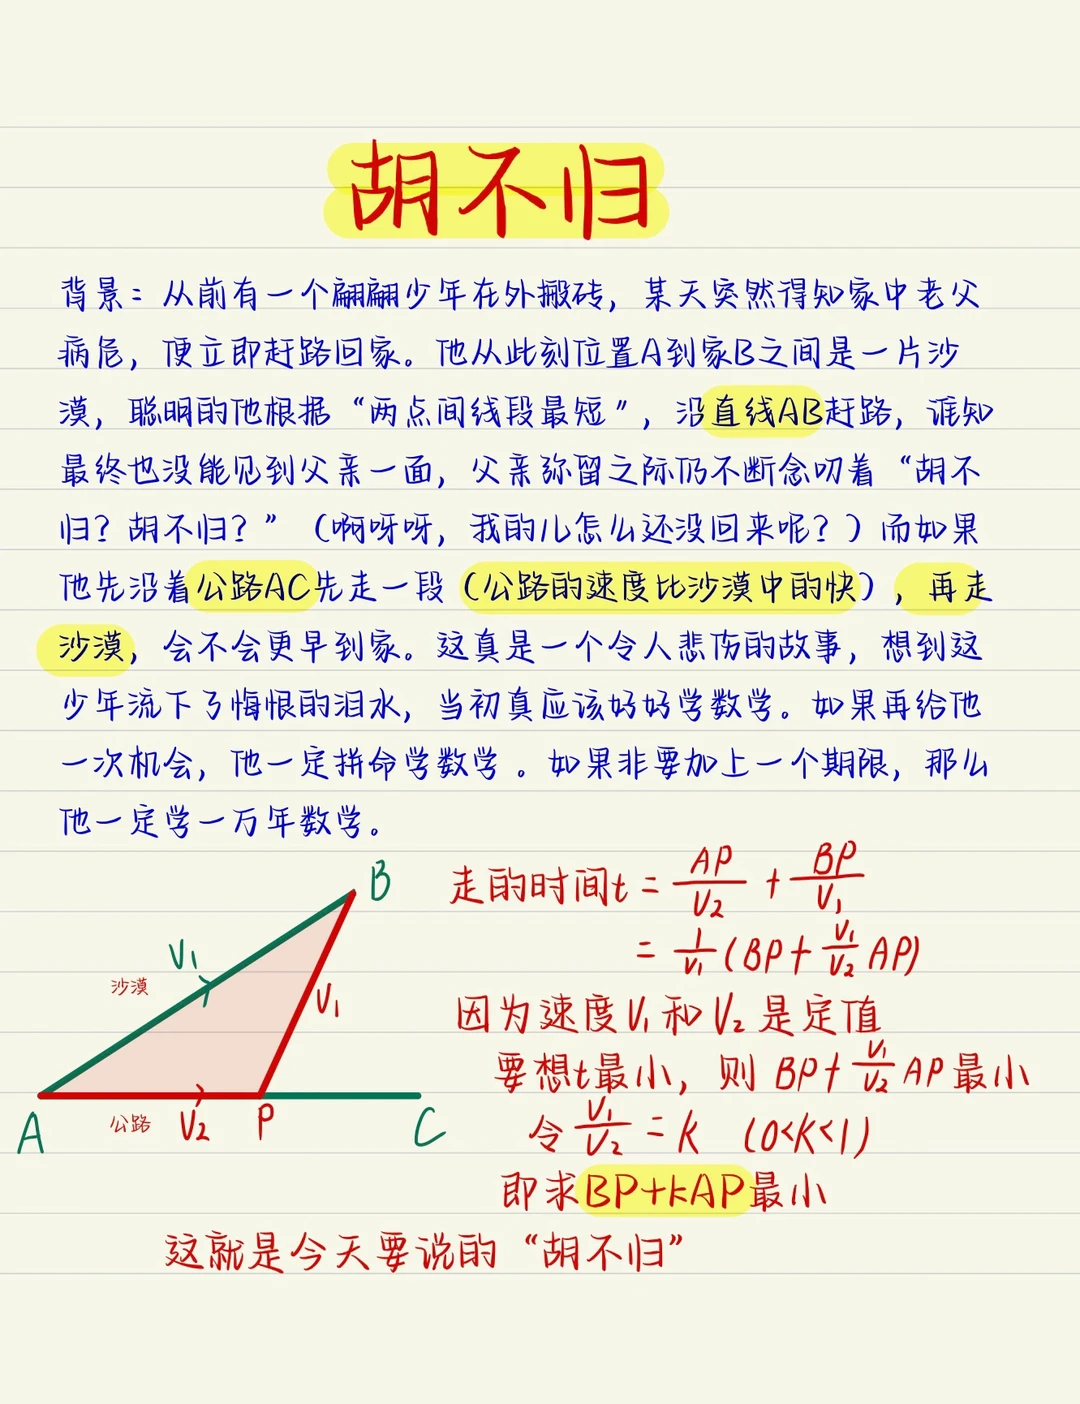 胡不归
背景：从前有一个翩翩少年在外搬砖，某天突然得知家中老父
病危，便立即赶路回家。他从此刻位置A到家B之间是一片沙
漠，聪明的他根据“两点间线段最短”，沿直线AB赶路，谁知
最终也没能见到父亲一面，父亲弥留之际仍不断念叨着“胡不
归？胡不归？”（啊呀呀，我的儿怎么还没回来呢？）而如果
他先沿着公路AC先走一段（公路的速度比沙漠中的快），再走
沙漠，会不会更早到家。这真是一个令人悲伤的故事，想到这
少年流下了悔恨的泪水，当初真应该好好学数学。如果再给他
一次机会，他一定拼命学数学。如果非要加上一个期限，那么
他一定学一万年数学。
B
V₁
沙漠
V₁
A
公路
V₂
P
C
走的时间t = AP/V₂ + BP/V₁
= 1/V₁(BP+V₁/V₂ AP)
因为速度V₁和V₂是定值
要想t最小，则 BP+V₁/V₂ AP最小
令 V₁/V₂ = K (0<K<1)
即求BP+kAP最小
这就是今天要说的“胡不归”